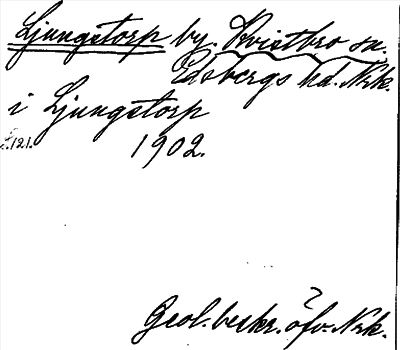 Ljungstorp by. Kvistbro sn.
Edsbergs hd. Nrk.
i Ljungstorp
s. 121. 1902.
Geol. beskr. öfv. Nrk.